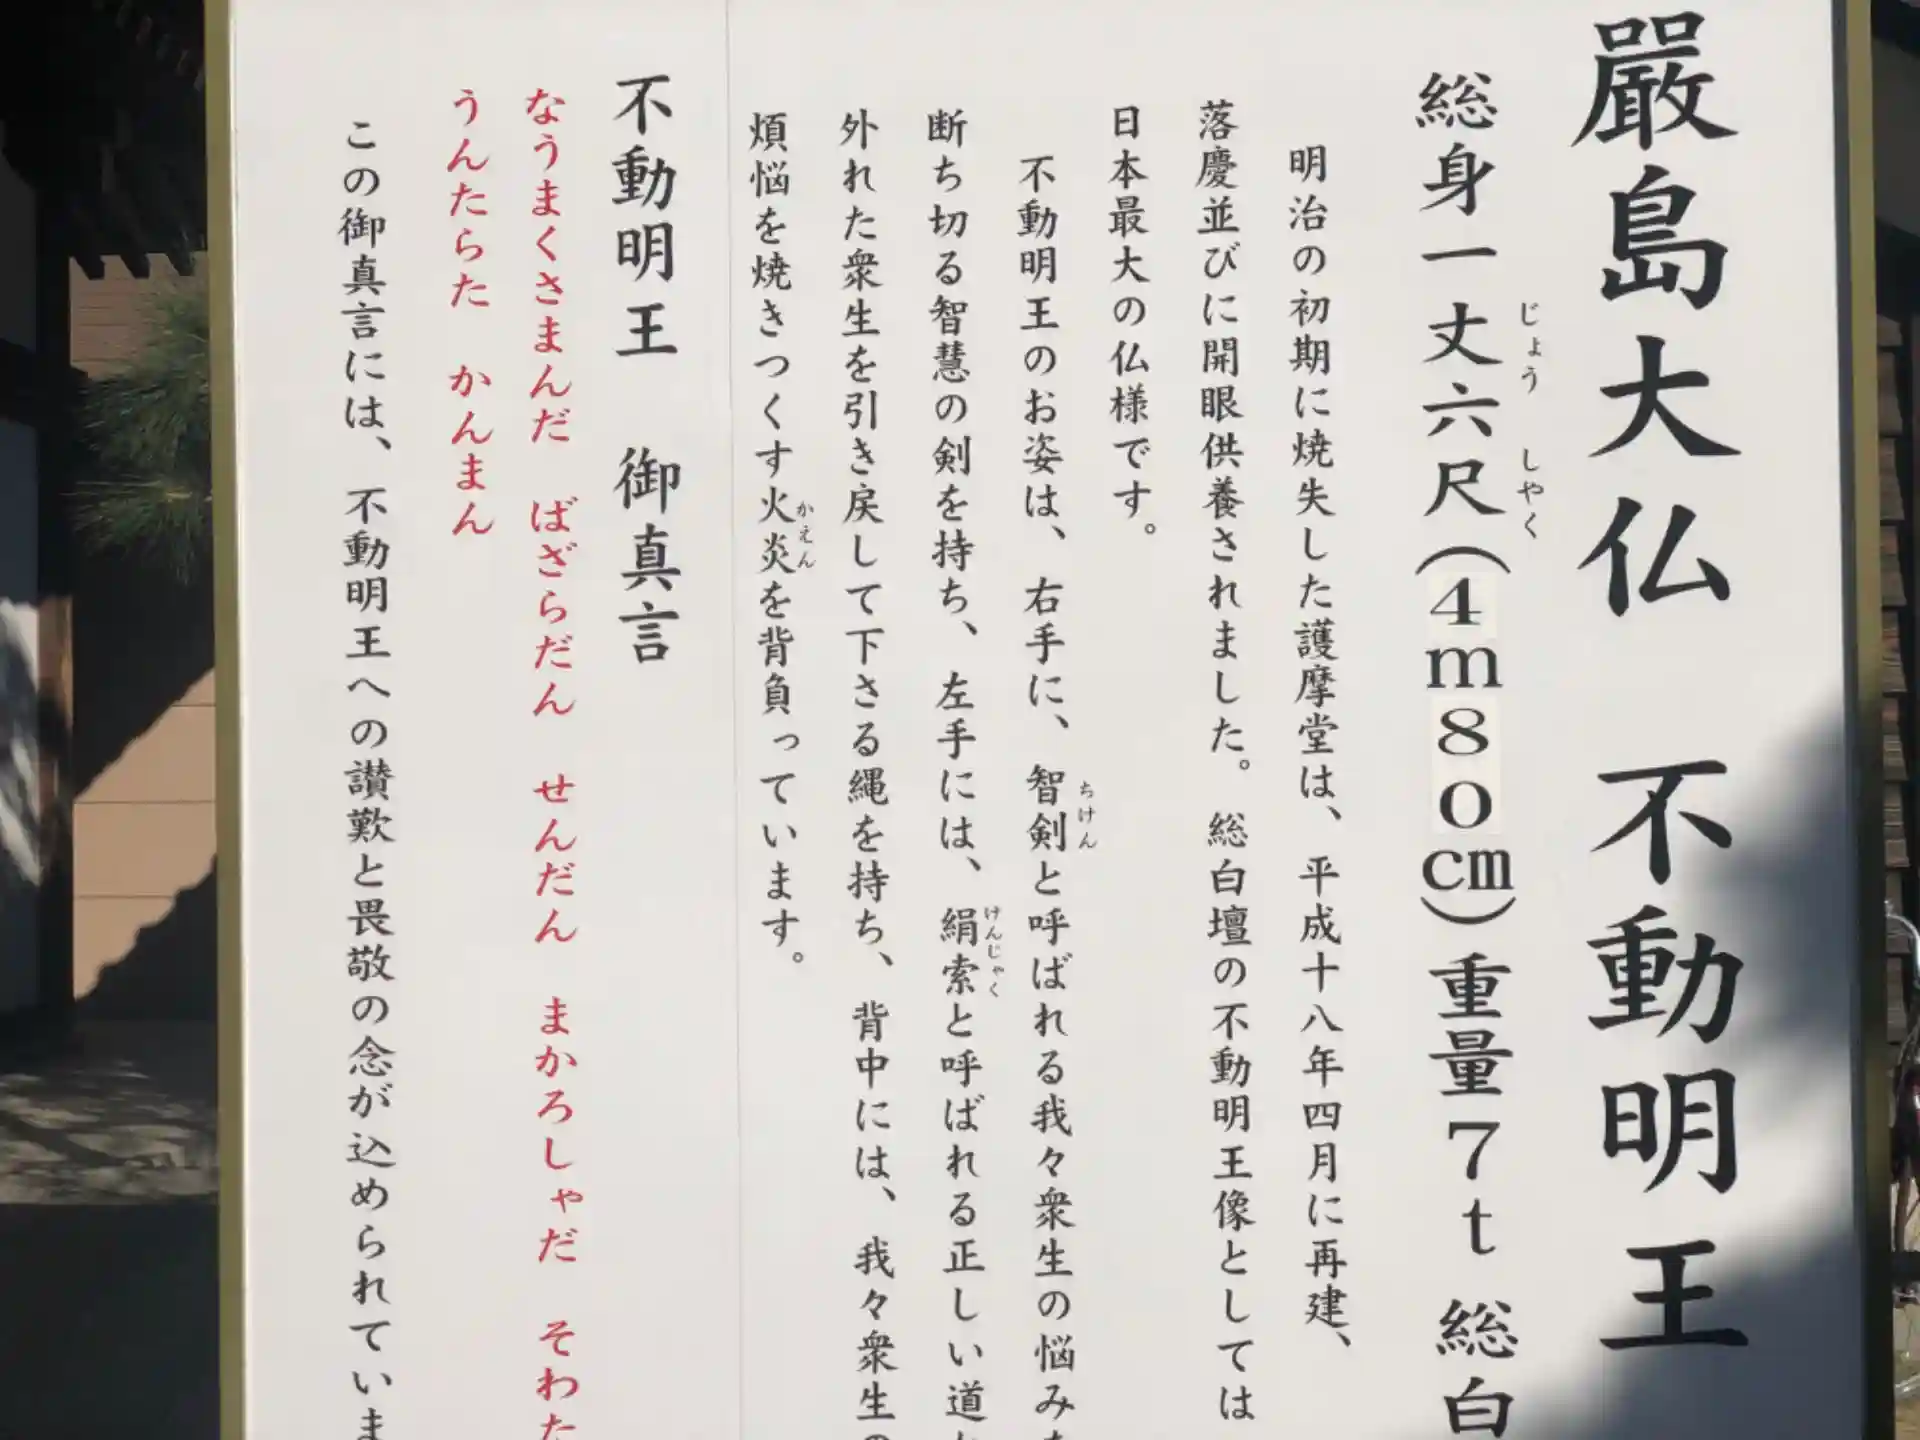 嚴島大仏　不動明王
総身一丈六尺(4m80cm)重量7t　総白
じょう　しやく
明治の初期に焼失した護摩堂は、平成十八年四月に再建、
落慶並びに開眼供養されました。総白壇の不動明王像としては
日本最大の仏様です。
不動明王のお姿は、右手に、智剣と呼ばれる我々衆生の悩み
ちけん
断ち切る智慧の剣を持ち、左手には、絹索と呼ばれる正しい道
けんじゃく
外れた衆生を引き戻して下さる縄を持ち、背中には、我々衆生
煩悩を焼きつくす火炎を背負っています。
かえん
不動明王　御真言
なうまくさまんだ　ばざらだん　せんだん　まかろしゃだ　そわた
うんたらた　かんまん
この御真言には、不動明王への讃歎と畏敬の念が込められていま